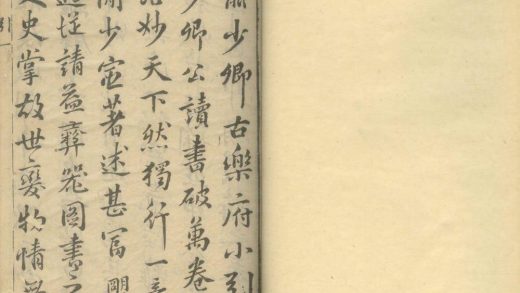 少卿古樂府小引
少卿公讀書破萬卷
妙天下然獨行一
少宦著述甚富
從請益彝器图書之
史掌故世變物情無
引